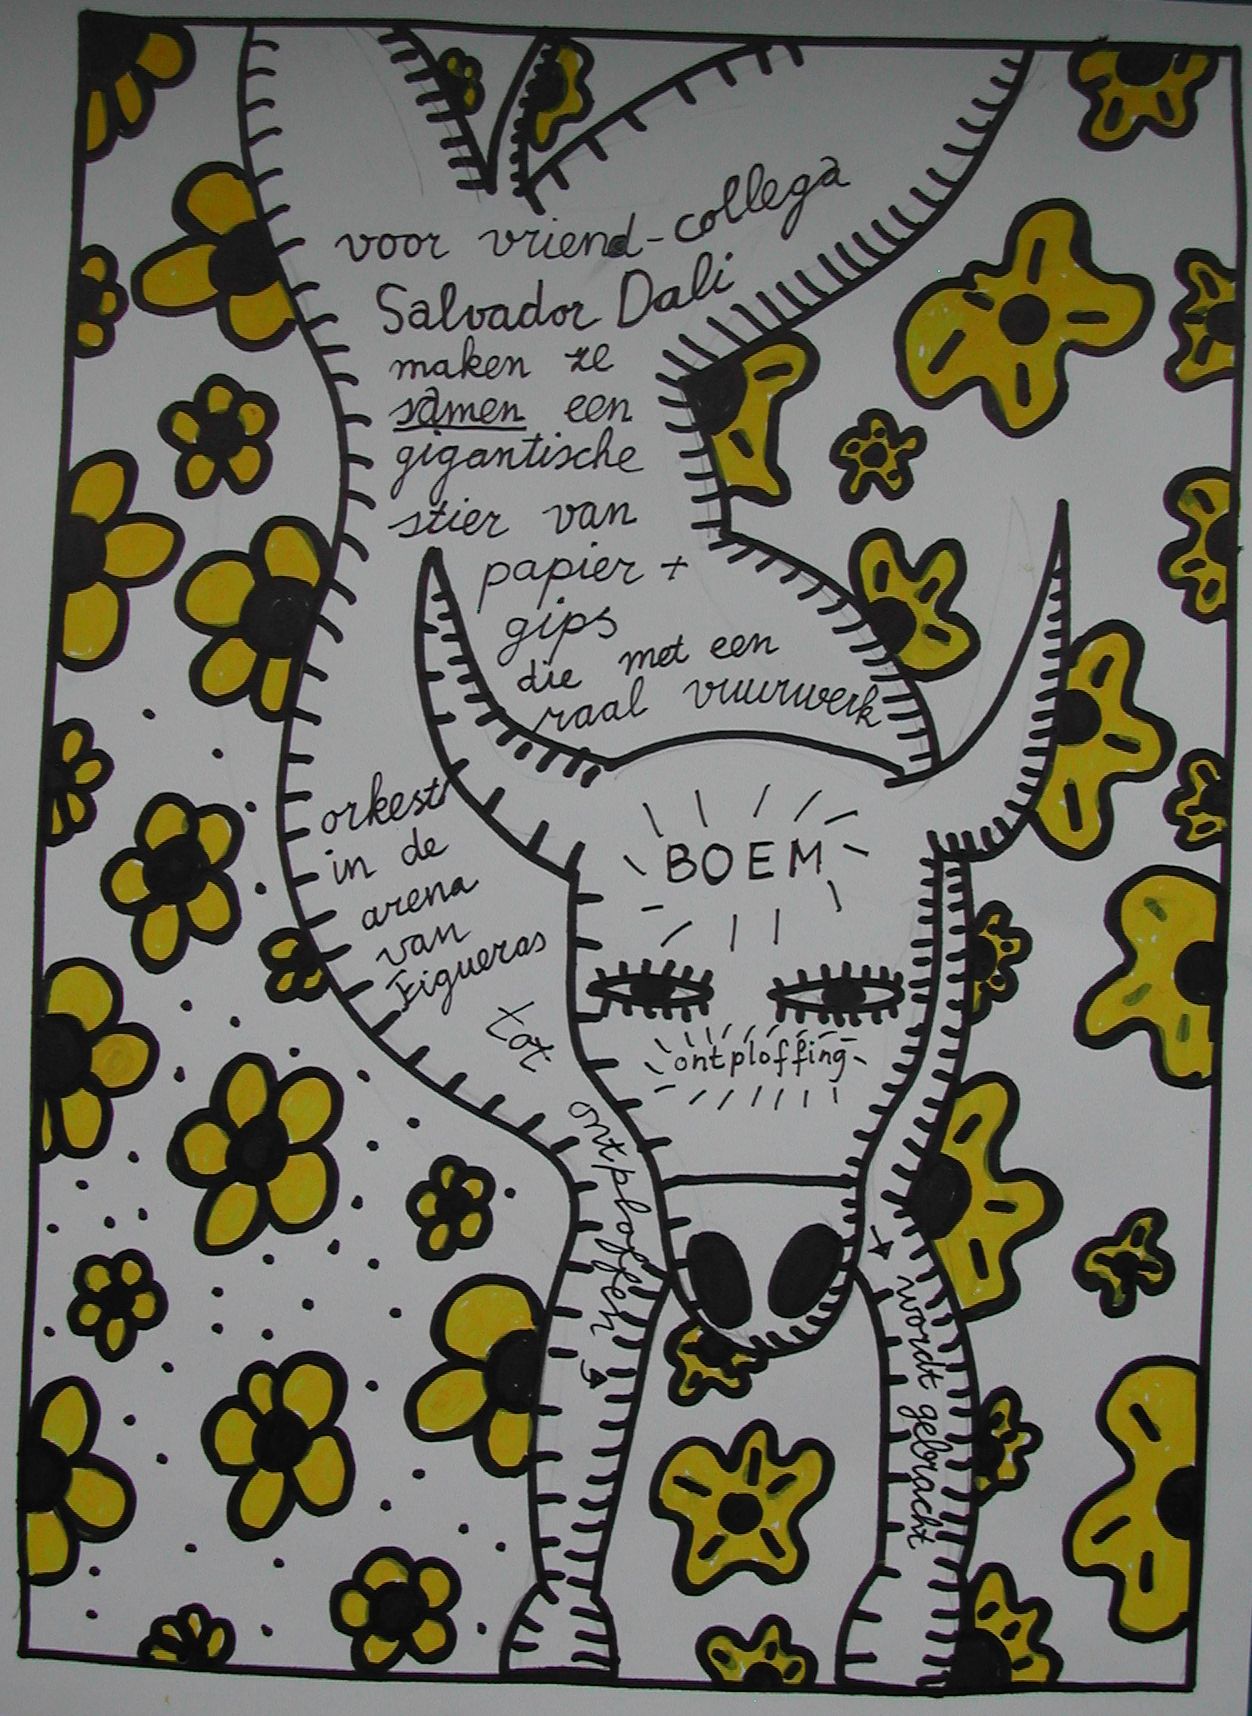 voor vriend-collega
Salvador Dali
maken ze
samen een
gigantische
stier van
papier +
gips
die met een
raal vuurwerk
orkest
in de
arena
van
Figueras
tot
ontploffen
wordt gebracht
BOEM
ontploffing